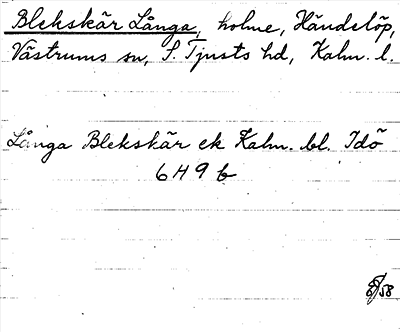 Blekskär Långa, holme, Händelöp,
Västrums sn, S. Tjusts hd, Kalm. l.
Långa Blekskär ek Kalm. bl. Idö
6H9b
8/58